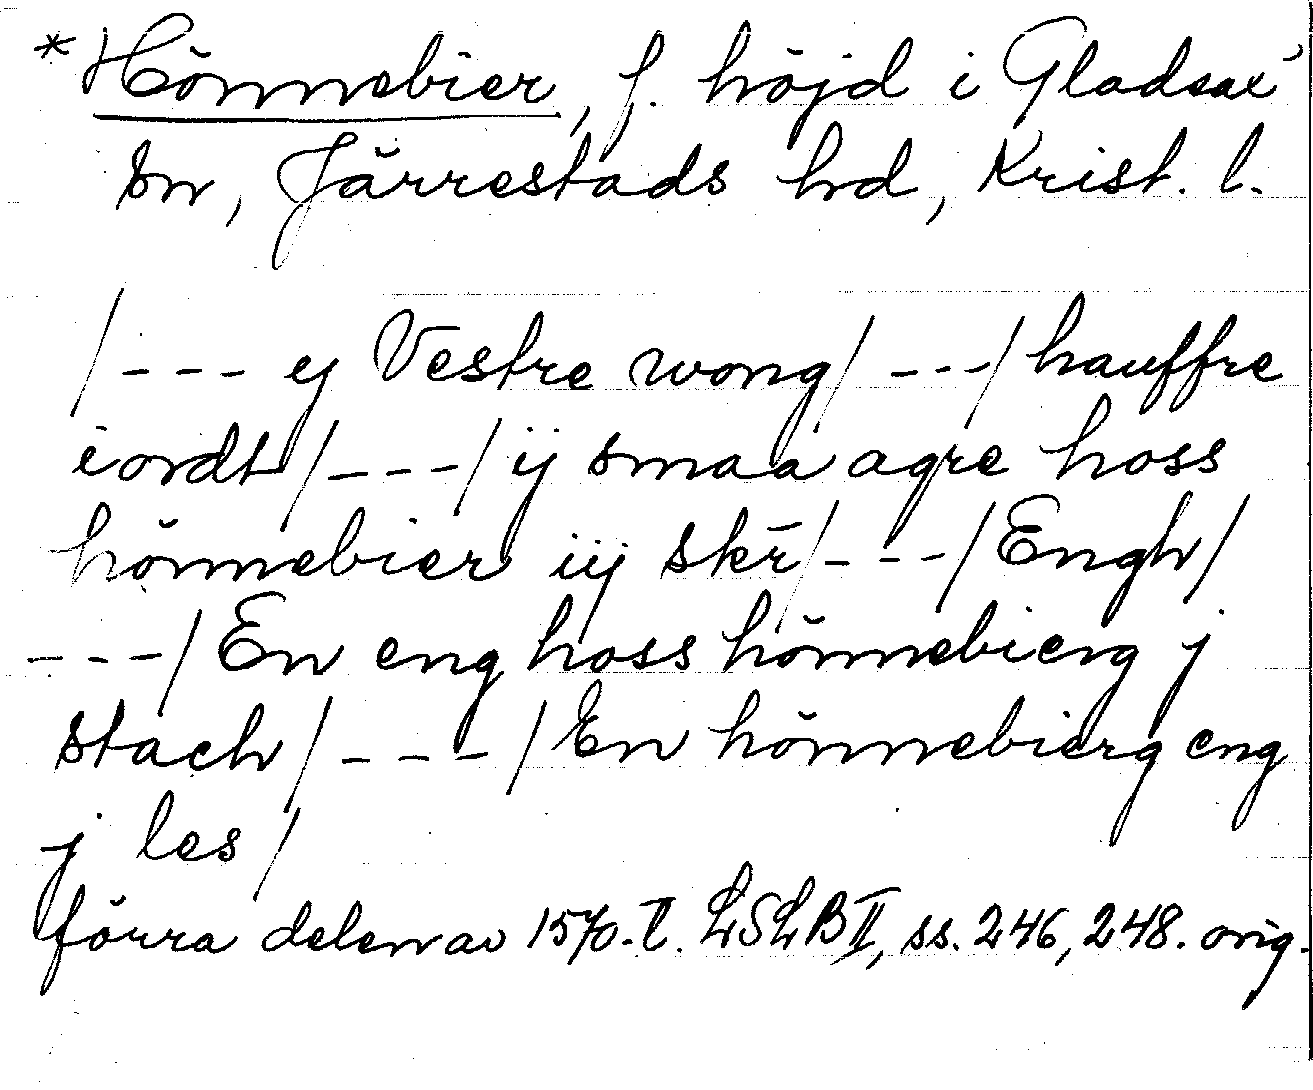 *Hönnebier, f. höjd i Gladsax'
sn, Järrestads hd, Krist. l.
/--- ej Vestre wong/ ---/ hauffre
iordt/---/ ij smaa agre hoss
hönnebier iij skr̄/---/ Engh/
---/ En eng hoss hönnebierg j
stach/ ---/ En hönnebierg eng
j les/
förra delen av 1570-t. LSLB II, ss. 246, 248. orig.